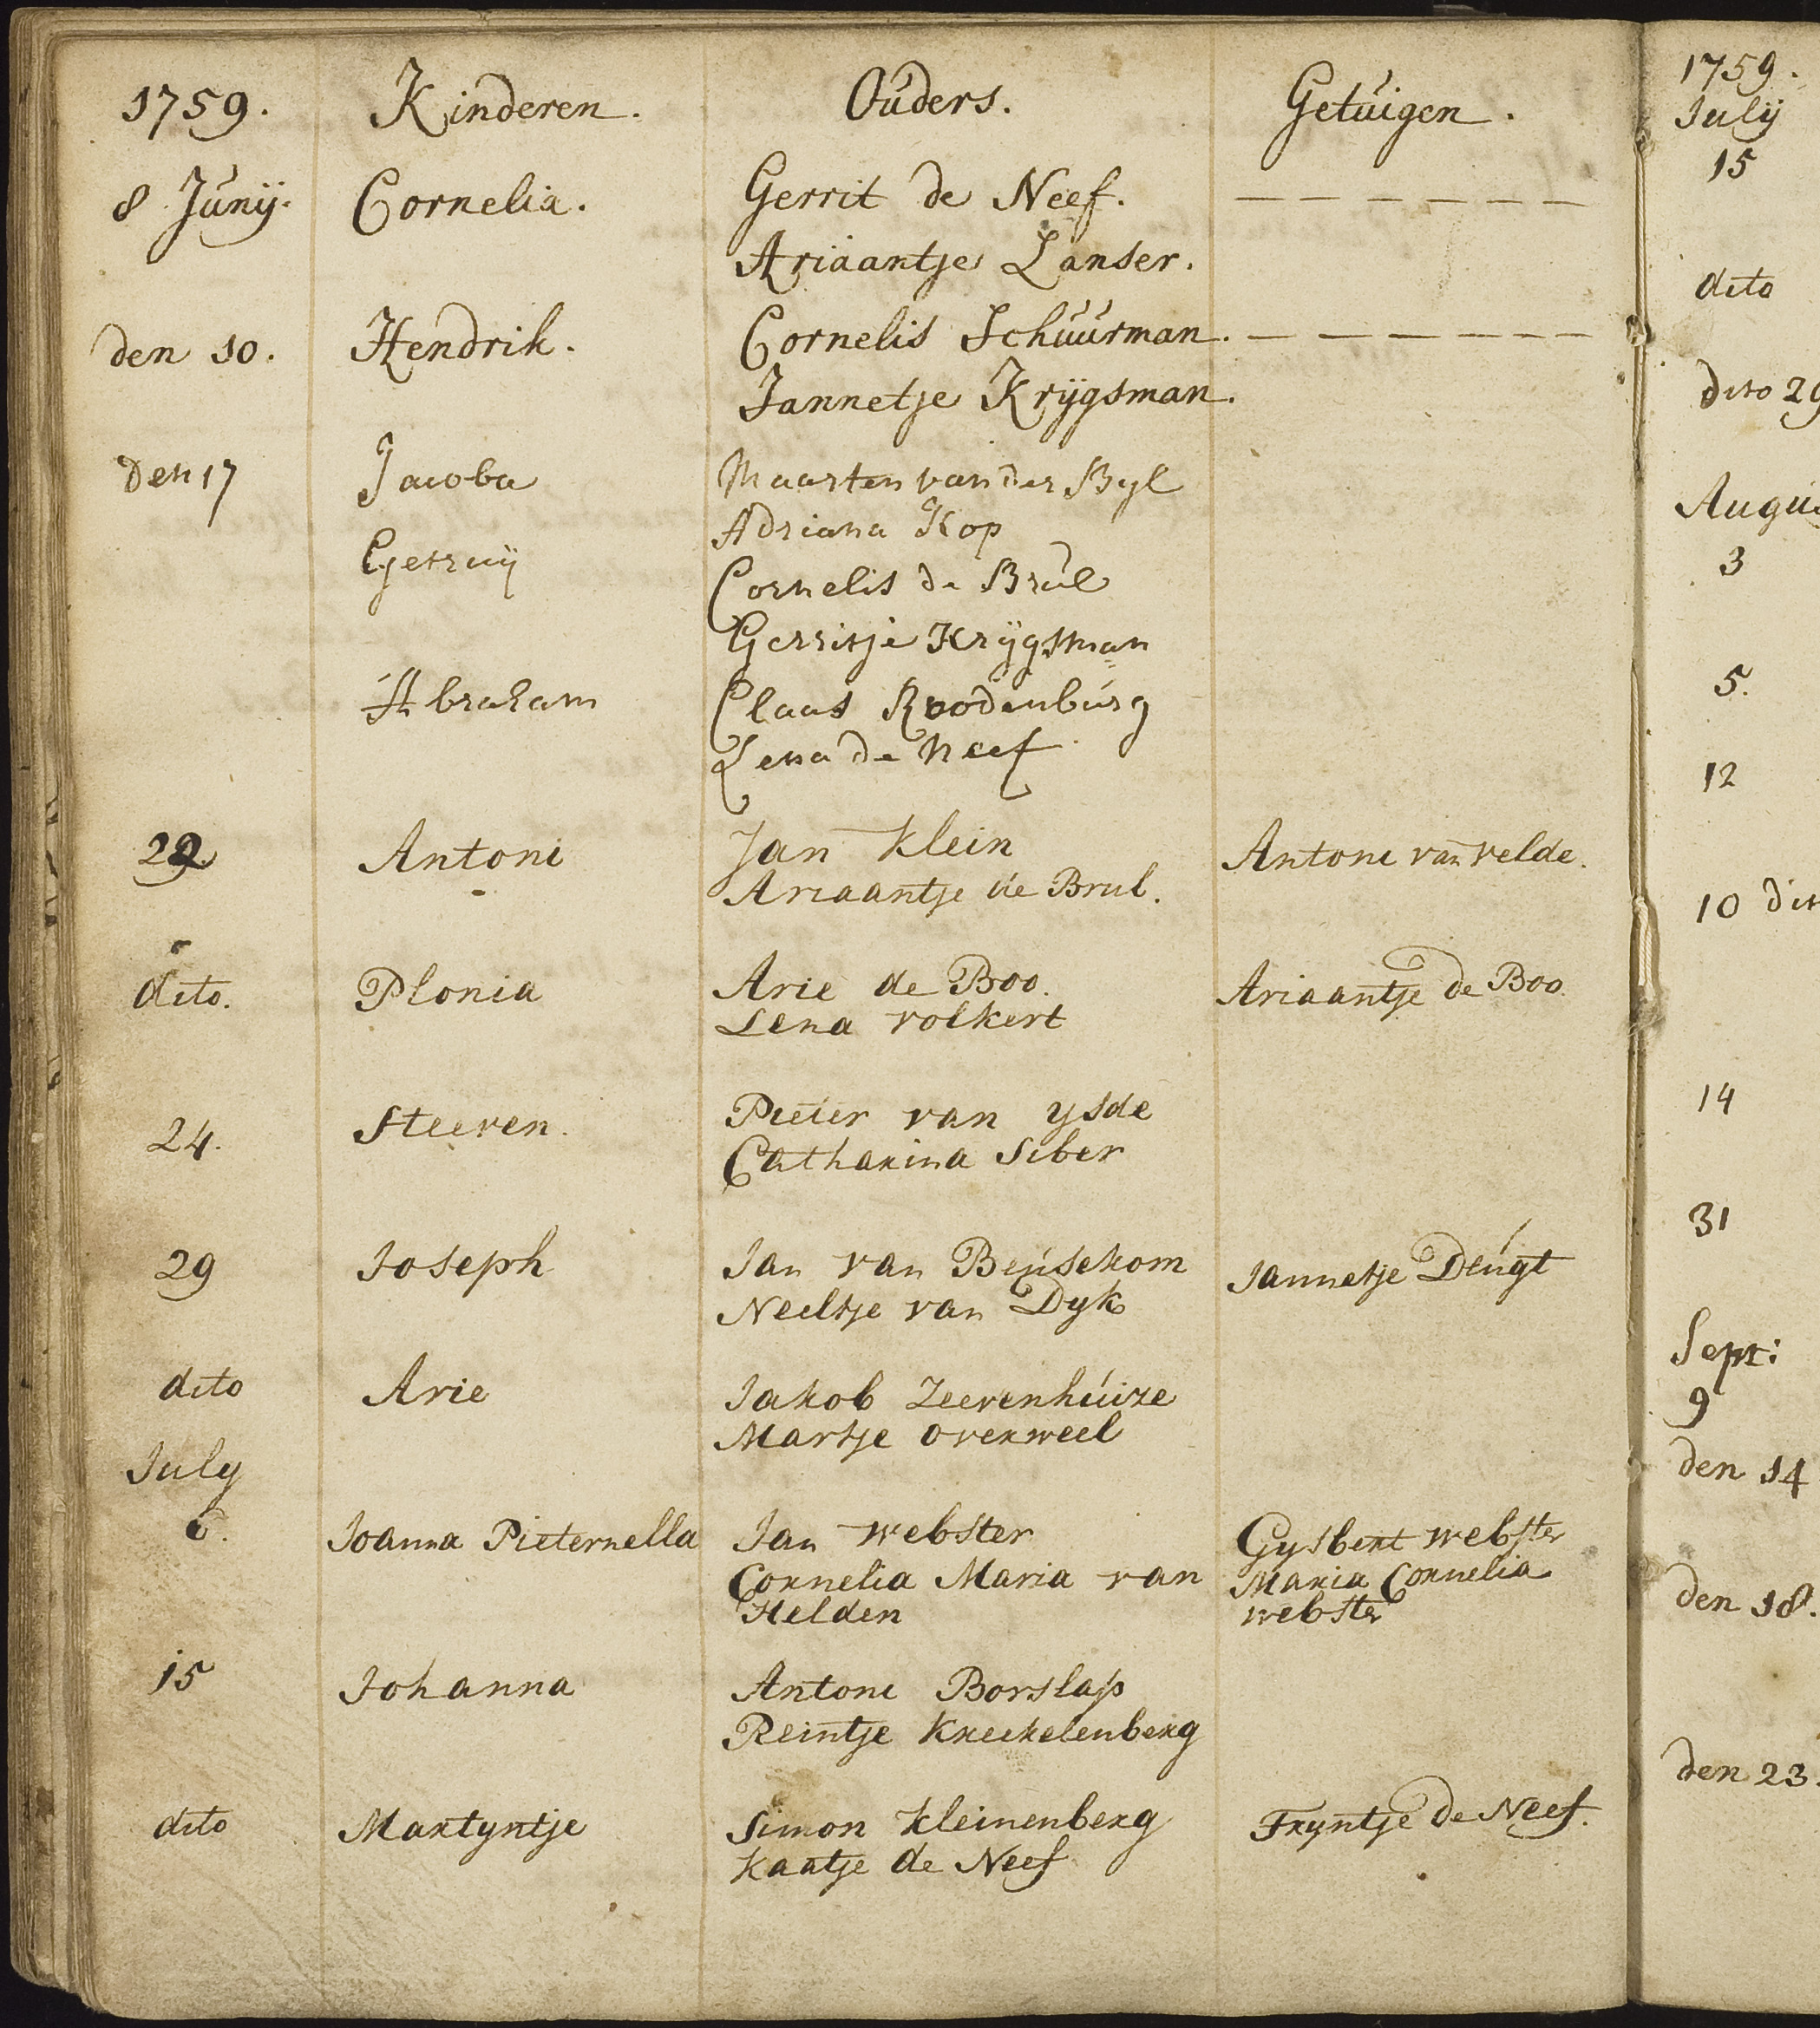 1759. Kinderen. Ouders. Getuigen.
8 Junij. Cornelia. Gerrit de Neef. — — — — — —
Ariaantje Lanser.
den 10. Hendrik. Cornelis Schuurman. — — — — — —
Jannetje Krijgsman.
Den 17 Jacoba Maarten van der Byl
Adriana Kop
Gerruij Cornelis de Brul
Gerritje Krijgsman
Abraham Claas Roodenburg
Lena de Neef
Antoni Jan Klein Antoni van Velde.
Ariaantje de Brul.
dito. Plonia Arie de Boo. Ariaantje de Boo.
Lena Volkert
24. Steeven. Pieter van ysde
Catharina Siber
29 Joseph Jan van Beusekom Jannetje Deugt
Neeltje van Dyk
dito Arie Jakob Zeevenhuize
Martje Overweel
July
6. Joanna Pieternella Jan Webster Gysbert Webster
Cornelia Maria van Maria Cornelia
Helden Webster
15 Johanna Antoni Borslap
Reintje Kreekelenberg
dito Martyntje Simon Kleinenberg Tryntje de Neef.
Kaatje de Neef
1759.
Julij
15
dito
dito 29
Augu
3
5.
12
10 dit
14
31
Sept:
9
den 14
den 18.
den 23.